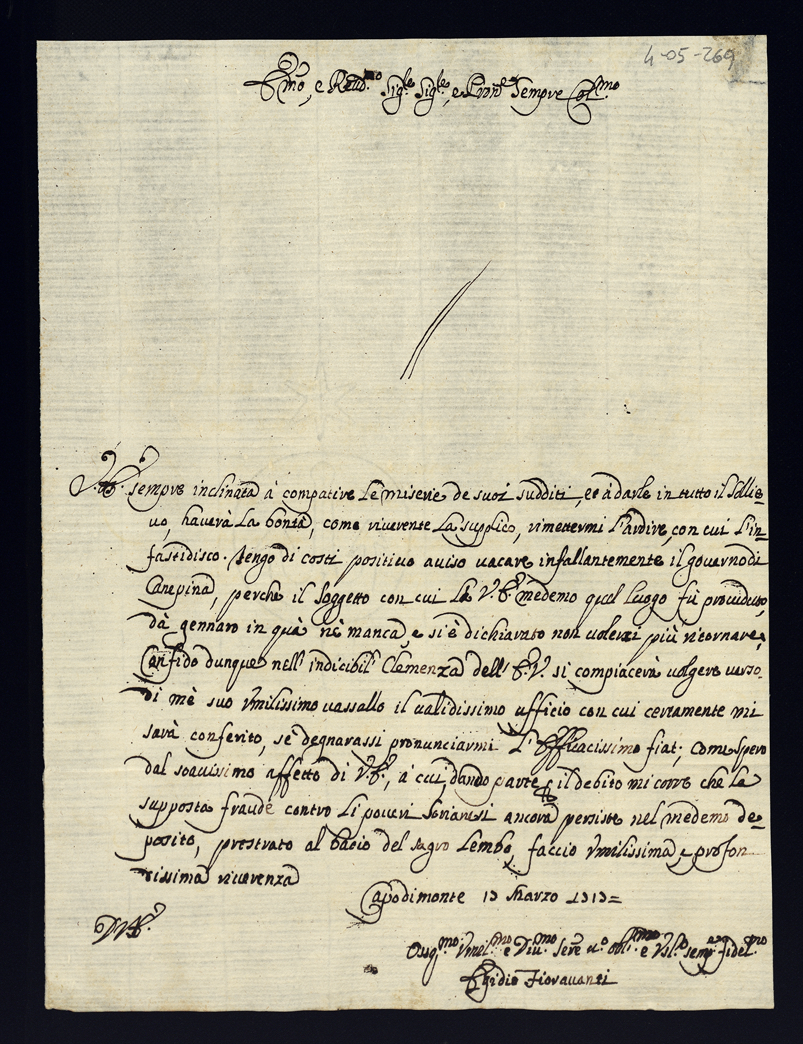 4-05-269
Emo, e Revd.mo Sig.re Sig.re, e Prone Sempre Col.mo
V.E. sempre inclinata à compatire le miserie de suoi sudditi, et à darle in tutto il sollie=
vo, haverà la bontà, come riverente la supplico, rimettermi l'ardire, con cui l'in=
fastidisco. Tengo di costì positivo aviso vacare infallantemente il governo di
Canepina, perche il soggetto con cui la V.E. medemo quel luogo fù providuto,
dà gennaro in quà nè manca, e si è dichiarato non volerci più ritornare,
Confido dunque nell' indicibil' Clemenza dell' E.V. si compiacerà volgere verso
di mè suo Vmilissimo vassallo il validissimo ufficio con cui certamente mi
sarà conferito, se degnarassi pronunciarmi l'efficacissimo fiat; come spero
dal soavissimo affetto di V.E., à cui, dando parte, il debito mi corre che le
supposta fraude contro li poveri Sorianesi ancora persiste nel medemo de=
posito, prostrato al bacio del sagro lembo, faccio Vmilissima, e profon
dissima riverenza
Capodimonte 13 Marzo 1313=
D V.E.
Ossq.mo Vmil.mo e Div.mo Serv.e v.o obl.mo e Vsl.o semp.e fidel.mo
Egidio Fioravanti